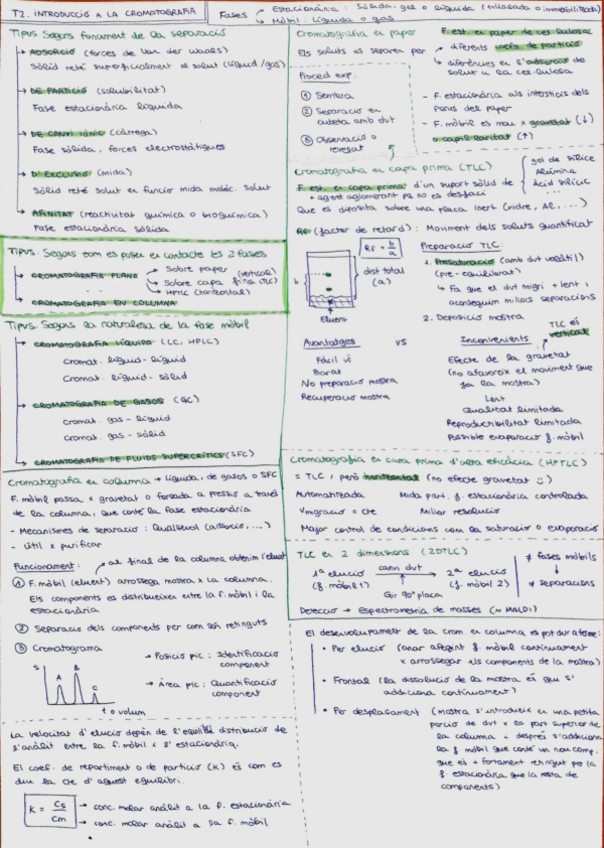 T2. INTRODUCCIÓ A LA CROMATOGRAFIA
Fases
Estacionària: Sòlida, gel o líquida (enllaçada o immobilitzada)
Mòbil: Líquida o gas
Tipus Segons fonament de la separació
ADSORCIÓ (forces de Van der Waals)
Sòlid reté superficialment el solut (líquid/gas)
DE PARTICIÓ (solubilitat)
Fase estacionària líquida
DE CANVI IÒNIC (càrrega)
Fase sòlida, forces electrostàtiques
D'EXCLUSIÓ (mida)
Sòlid reté solut en funció mida molèc. solut
AFINITAT (reactivitat química o bioquímica)
Fase estacionària sòlida
Tipus. Segons com es posen en contacte les 2 fases
CROMATOGRAFIA PLANA
Sobre paper
Sobre capa fina (TLC)
(vertical)
HPTLC (horitzontal)
CROMATOGRAFIA EN COLUMNA
Tipus. Segons la naturalesa de la fase mòbil
CROMATOGRAFIA LÍQUIDA (LC, HPLC)
Cromat. líquid-líquid
Cromat. líquid-sòlid
CROMATOGRAFIA DE GASOS (GC)
Cromat. gas-líquid
Cromat. gas-sòlid
CROMATOGRAFIA DE FLUIDS SUPERCRÍTICS (SFC)
Cromatografia en columna → líquida, de gasos o SFC
F. mòbil passa x gravetat o forçada a pressió a través
de la columna, que conté la fase estacionària
- Mecanismes de separació: Qualsevol (adsorció, ...)
- Útil x purificar
Funcionament:
al final de la columna obtenim l'eluat
① F. mòbil (eluent) arrossega mostra x la columna.
Els components es distribueixen entre la f. mòbil i la
estacionària
② Separació dels components per com són retinguts
③ Cromatograma
S
A
B
C
t o volum
→ Posició pic: Identificació
component
→ Àrea pic: Quantificació
component
La velocitat d'elució depèn de l'equilibri distribució de
l'anàlit entre la f. mòbil i l'estacionària.
El coef. de repartiment o de partició (K) és com es
diu la cte d'aquest equilibri.
K = Cs / Cm
→ conc. molar anàlit a la f. estacionària
→ conc. molar anàlit a la f. mòbil
Cromatografia en paper
F. est. en paper de cel·lulosa
Els soluts es separen per
diferents coefs. de partició
diferències en l'adsorció de
solut a la cel·lulosa
Proced exp:
① Sembra
② Separació en
cubeta amb dvt
③ Observació o
revelat
- F. estacionària als intersticis dels
porus del paper
- F. mòbil es mou x gravetat (↓)
o capil·laritat (↑)
Cromatografia en capa prima (TLC)
F. est. en capa prima d'un suport sòlid de
gel de sílice
Alúmina
Àcid silícic
...
+ agent aglomerant pq no es desfaci
Que es diposita sobre una placa inert (vidre, Al, ...)
Rf (factor de retard): Moviment dels soluts quantificat
Rf = b/a
b
dist total
(a)
Eluent
Preparació TLC:
1. Presaturació (amb dvt volàtil)
(pre-equilibrat)
↳ Fa que el dvt migri + lent i
aconseguim millors separacions
2. Deposició mostra
Avantatges
vs
Inconvenients
TLC és
vertical
Fàcil ús
Barat
No preparació mostra
Recuperació mostra
Efecte de la gravetat
(no afavoreix el moviment que
fa la mostra)
Lent
Qualitat limitada
Reproductibilitat limitada
Possible evaporació f. mòbil
Cromatografia en capa prima d'alta eficàcia (HPTLC)
= TLC, però horitzontal (no efecte gravetat :))
Automatitzada
Mida part. f. estacionària controlada
Vmigració = cte
Millor resolució
Major control de condicions com la saturació o evaporació
TLC en 2 dimensions (2DTLC)
1ª elució
(f. mòbil 1)
canvi dvt
Gir 90° placa
2ª elució
(f. mòbil 2)
≠ fases mòbils
↓
≠ separacions
Detecció → Espectrometria de masses (≈ MALDI)
El desenvolupament de la crom en columna es pot dur a terme:
• Per elució (anar afegint f. mòbil contínuament
x arrossegar els components de la mostra)
• Frontal (la dissolució de la mostra és que s'
addiciona contínuament)
• Per desplaçament (mostra s'introdueix en una petita
porció de dvt x la part superior de
la columna i després s'addiciona
la f. mòbil que conté un nou comp.
que és + fortament retingut per la
f. estacionària que la resta de
components)